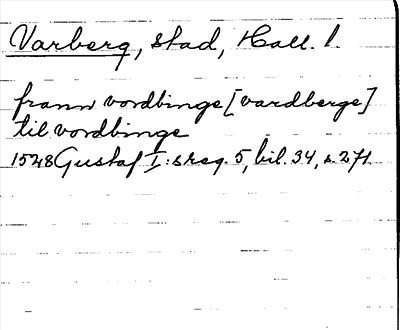 Varberg, stad, Hall. l.
frann vordbinge [vardberge]
til vordbinge
1528 Gustaf I:s reg. 5, bil. 34, s. 271.